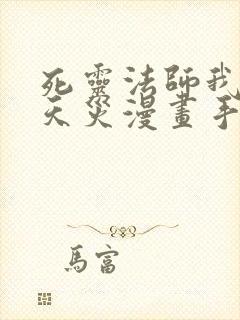 死靈法師我
天災漫畫手
馬富